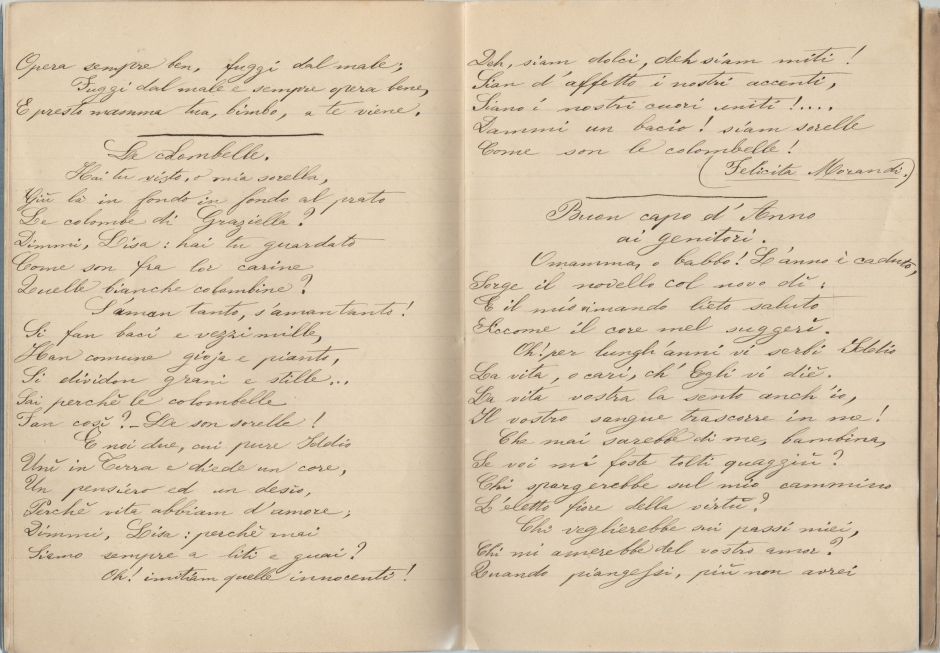 Opera sempre ben, fuggi dal male;
Fuggi dal male e sempre opera bene,
E presto mamma tua, bimbo, a te viene.
Le colombelle.
Hai tu visto, o mia sorella,
Giù là in fondo in fondo al prato
Le colombe di Graziella?
Dimmi, Lisa: hai tu guardato
Come son fra lor carine
Quelle bianche colombine?
S'aman tanto, s'aman tanto!
Si fan baci e vezzi mille,
Han comune gioja e pianto,
Si dividon grani e stille...
Sai perchè le colombelle
Fan così? - Le son sorelle!
E noi due, cui pure Iddio
Unì in Terra e diede un core,
Un pensiero ed un desio,
Perchè vita abbiam d'amore;
Dimmi, Lisa: perchè mai
Siamo sempre a liti e guai?
Oh! imitiam quelle innocenti!
Deh, siam dolci, deh siam miti!
Sian d'affetto i nostri accenti,
Siano i nostri cuori uniti!....
Dammi un bacio! siam sorelle
Come son le colombelle!
(Felicita Morandi.)
Buon capo d'Anno
ai genitori.
O mamma, o babbo! L'anno è caduto,
Sorge il novello col novo dì;
E il mio vi mando lieto saluto
Siccome il core mel suggerì.
Oh! per lungh'anni vi serbi Iddio
La vita, o cari, ch'Egli vi diè.
La vita vostra la sento anch'io,
Il vostro sangue trascorre in me!
Che mai sarebbe di me, bambina,
Se voi mi foste tolti quaggiù?
Chi spargerebbe sul mio cammino
L'eletto fiore della virtù?
Chi veglierebbe sui passi miei,
Chi mi amerebbe del vostro amor?
Quando piangessi, più non avrei